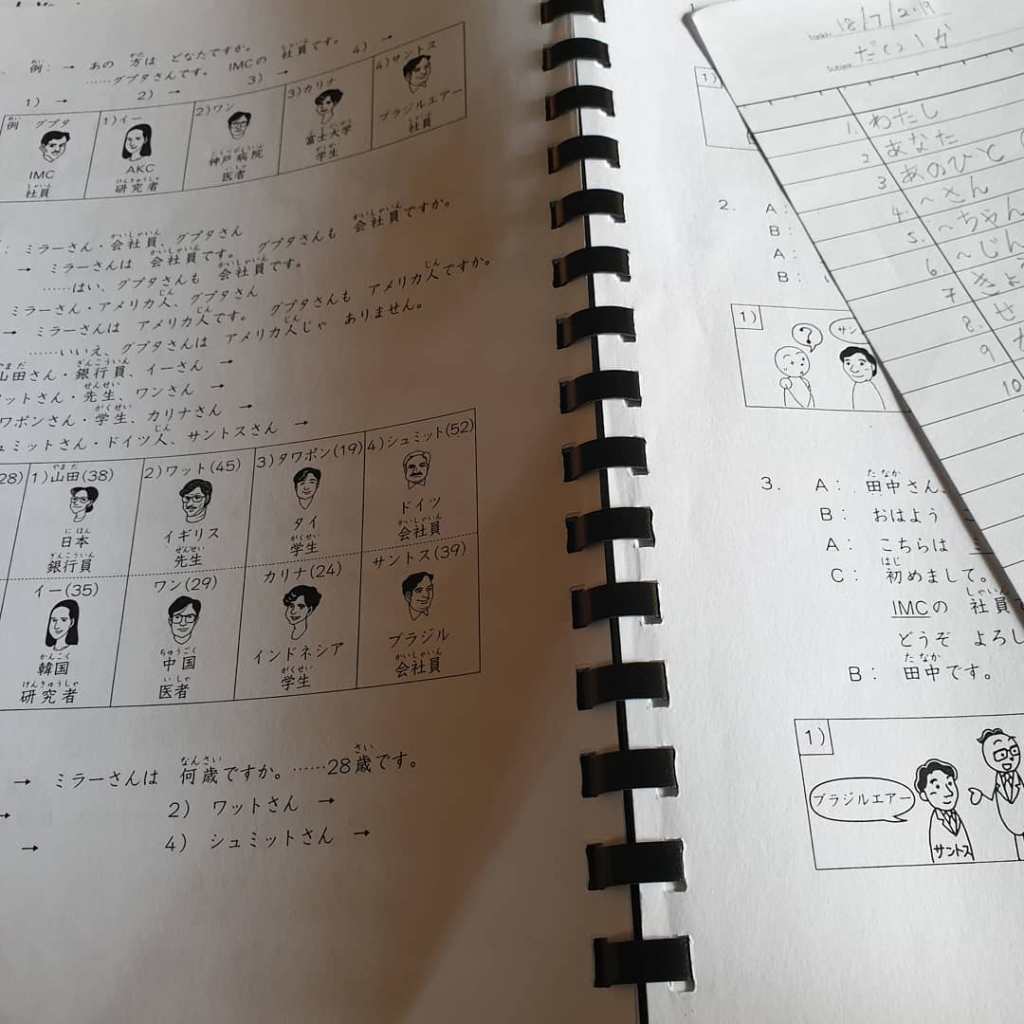 例: → あの 方は どなたですか。
……グプタさんです。 IMCの 社員です。
1) → 2) → 3) → 4) →
例 グプタ
IMC
社員
1)イー
AKC
研究者
2)ワン
神戸病院
医者
3)カリナ
富士大学
学生
4)サントス
ブラジルエアー
社員
: ミラーさん・会社員、グプタさん
→ ミラーさんは 会社員です。 グプタさんも 会社員ですか。
……はい、グプタさんも 会社員です。
ミラーさん・アメリカ人、グプタさん
→ ミラーさんは アメリカ人です。 グプタさんも アメリカ人ですか。
……いいえ、グプタさんは アメリカ人じゃ ありません。
山田さん・銀行員、イーさん →
ットさん・先生、ワンさん →
ワポンさん・学生、カリナさん →
ュミットさん・ドイツ人、サントスさん →
28)
1)山田(38)
日本
銀行員
2)ワット(45)
イギリス
先生
3)タワポン(19)
タイ
学生
4)シュミット(52)
ドイツ
会社員
イー(35)
韓国
研究者
ワン(29)
中国
医者
カリナ(24)
インドネシア
学生
サントス(39)
ブラジル
会社員
→ ミラーさんは 何歳ですか。……28歳です。
→ 2) ワットさん →
→ 4) シュミットさん →
1)
2. A:
B:
A:
B:
1)
?
サン
3. A: 田中さん、
B: おはよう
A: こちらは
C: 初めまして。
IMCの 社員
どうぞ よろし
B: 田中です。
1)
ブラジルエアー
サントス
18/7/2019
だいいか
1. わたし
2 あなた
3 あのひと
4. ~さん
5. ~ちゃん
6. ~じん
7
8. せ
9
10